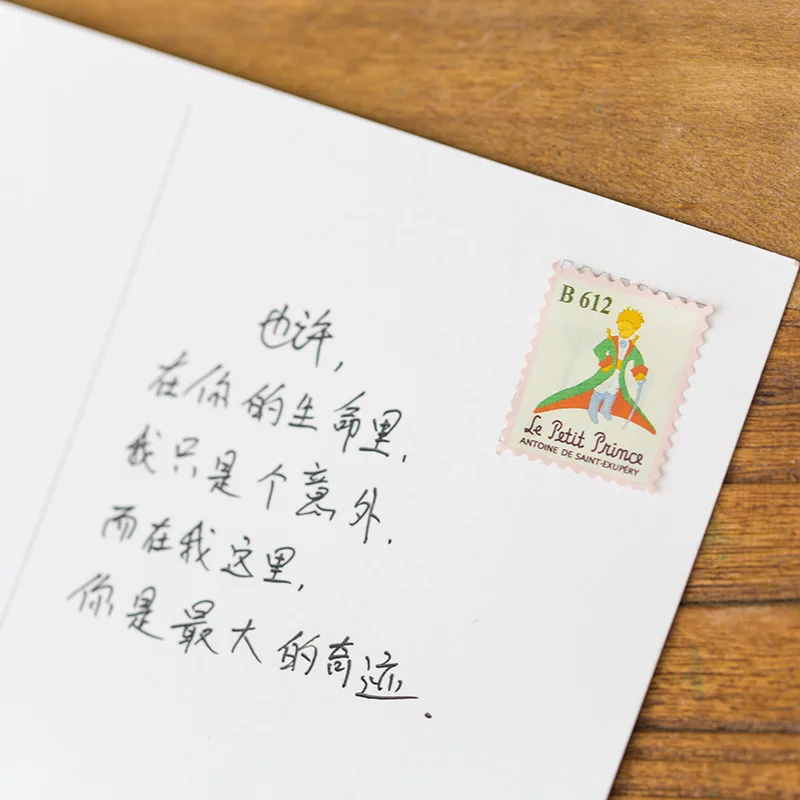 也许,
在你的生命里,
我只是个意外.
而在我这里,
你是最大的奇迹.
B 612
Le Petit Prince
ANTOINE DE SAINT-EXUPÉRY